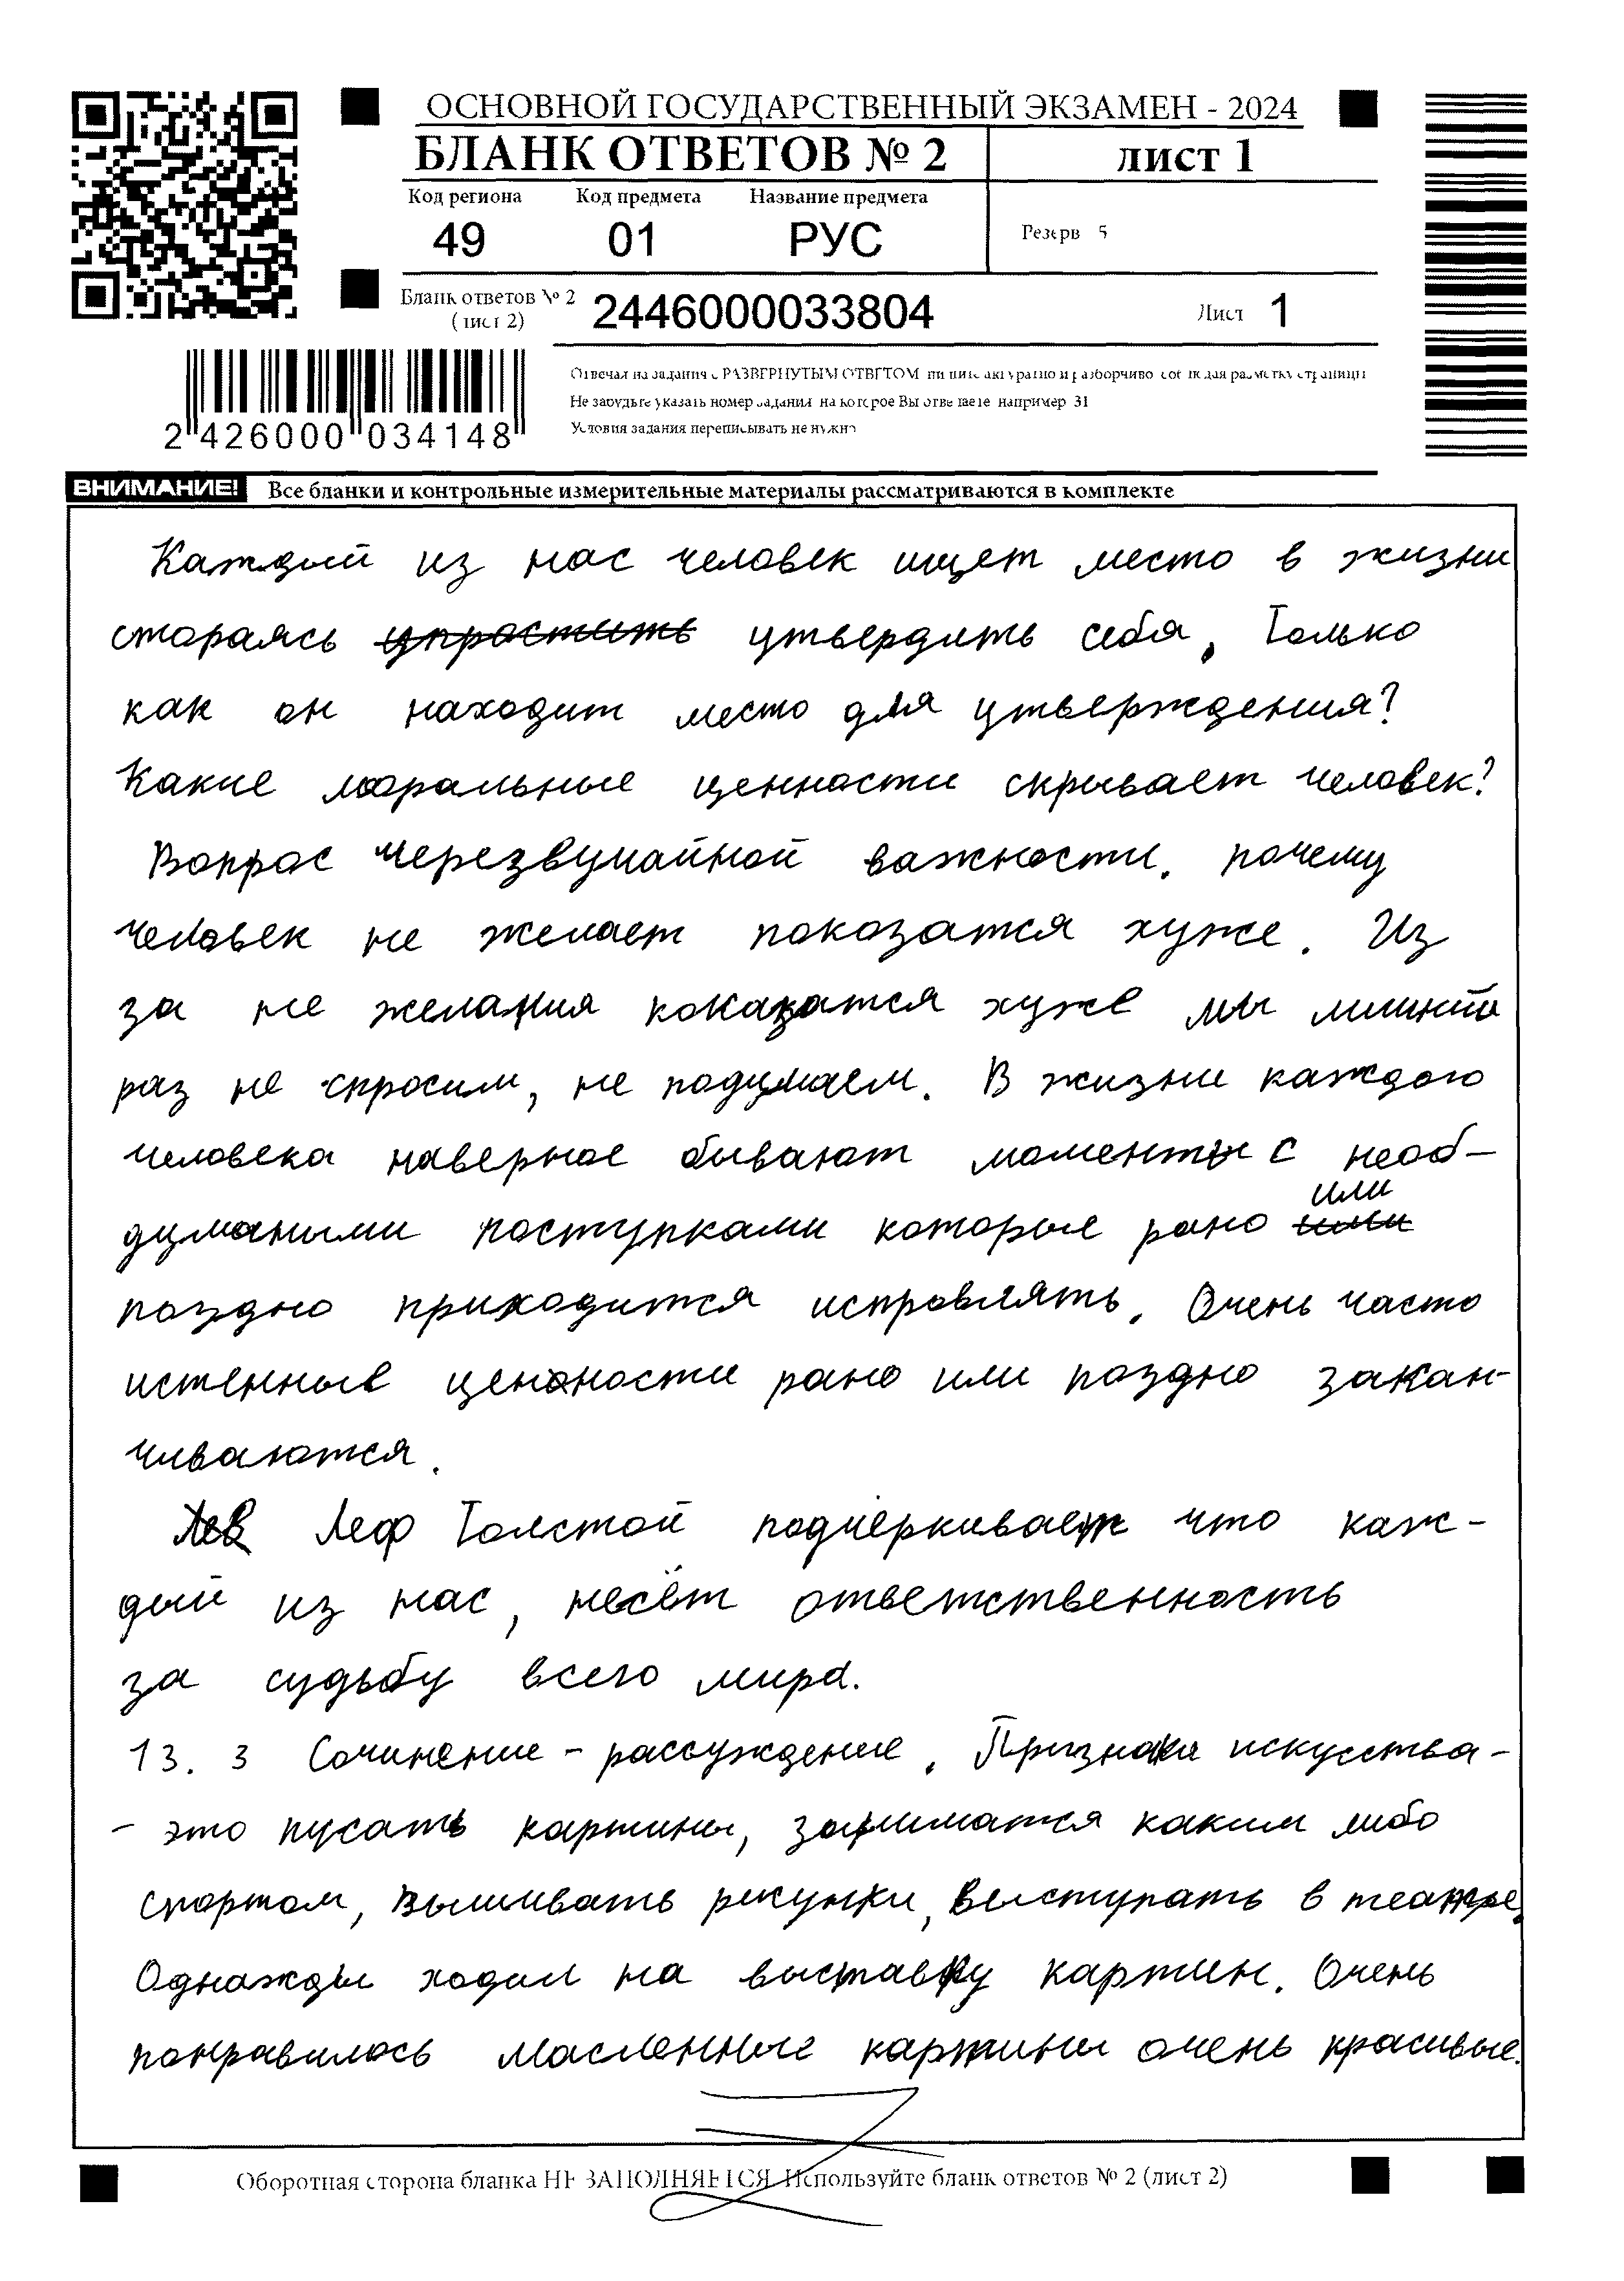 ОСНОВНОЙ ГОСУДАРСТВЕННЫЙ ЭКЗАМЕН - 2024
БЛАНК ОТВЕТОВ № 2
ЛИСТ 1
Код региона Код предмета Название предмета
49 01 РУС
Резерв 5
Бланк ответов № 2
(лист 2)
2446000033804
Лист 1
2 426000 034148
Отвечая на задания с РАЗВЕРНУТЫМ ОТВЕТОМ, пишите аккуратно и разборчиво, соблюдая разметку страницы
Не забудьте указать номер задания, на которое Вы отвечаете, например 31
Условия задания переписывать не нужно
ВНИМАНИЕ! Все бланки и контрольные измерительные материалы рассматриваются в комплекте
Каждый из нас человек ищет место в жизни
стораясь упростить утвердить себя, Только
как он находит место для утверждения?
Какие моральные ценности скрывает человек?
Вопрос черезвучайной важности. почему
человек не желает покозатся хуже. Из
за не желания коказатся хуже мы лишнтй
раз не спросим, не подумаем. В жизни каждого
человека наверное бывают моменты с необ-
думаными поступками которые рано или или
поздно приходится исправлять. Очень часто
истенные ценности рано или поздно закан-
чиваются.
Лев Леф Толстой подчеркивает что каж-
дый из нас, несёт ответственность
за судьбу всего мира.
13. 3 Сочинение - рассуждение. Признаки искусства-
- это пусать картины, заниматся каким либо
спортом, вышивать рисунки, выступать в театре.
Однажды ходил на выставку картин. Очень
понравилось масленные картины очень красивые.
Оборотная сторона бланка НЕ ЗАПОЛНЯЕТСЯ. Используйте бланк ответов № 2 (лист 2)